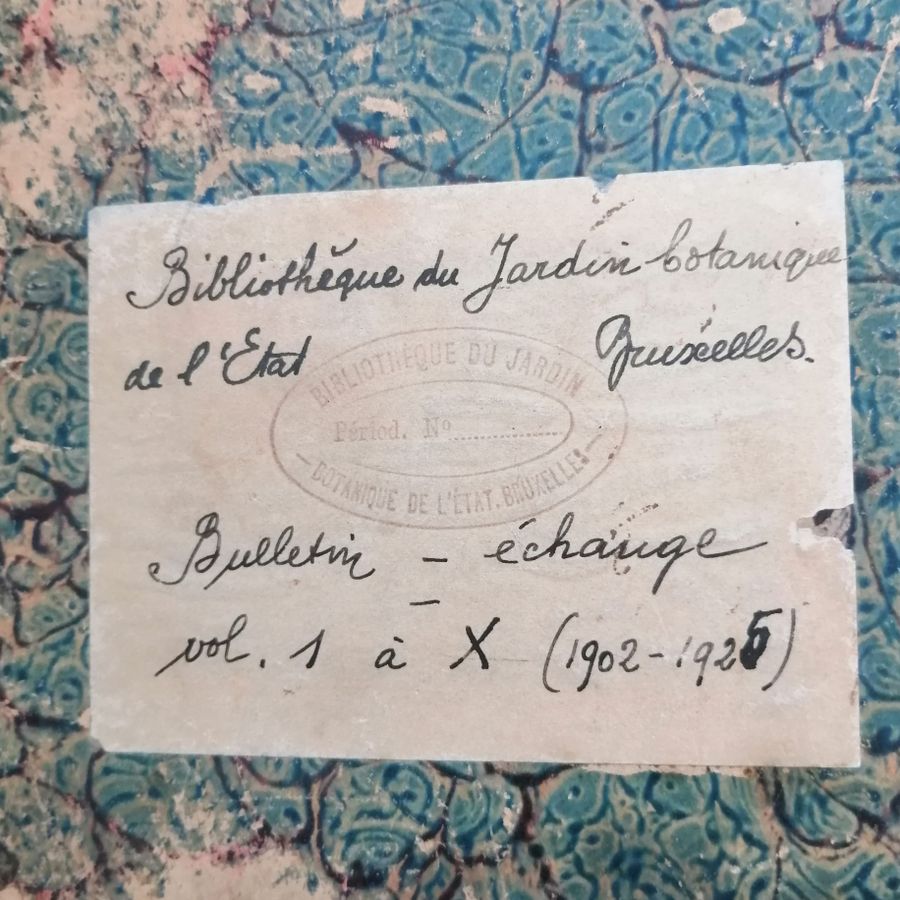 Bibliothèque du Jardin botanique
de l'État Bruxelles.
BIBLIOTHÈQUE DU JARDIN
Périod. Nº
— BOTANIQUE DE L'ÉTAT. BRUXELLES —
Bulletin - échange
-
vol. 1 à X (1902-1925)